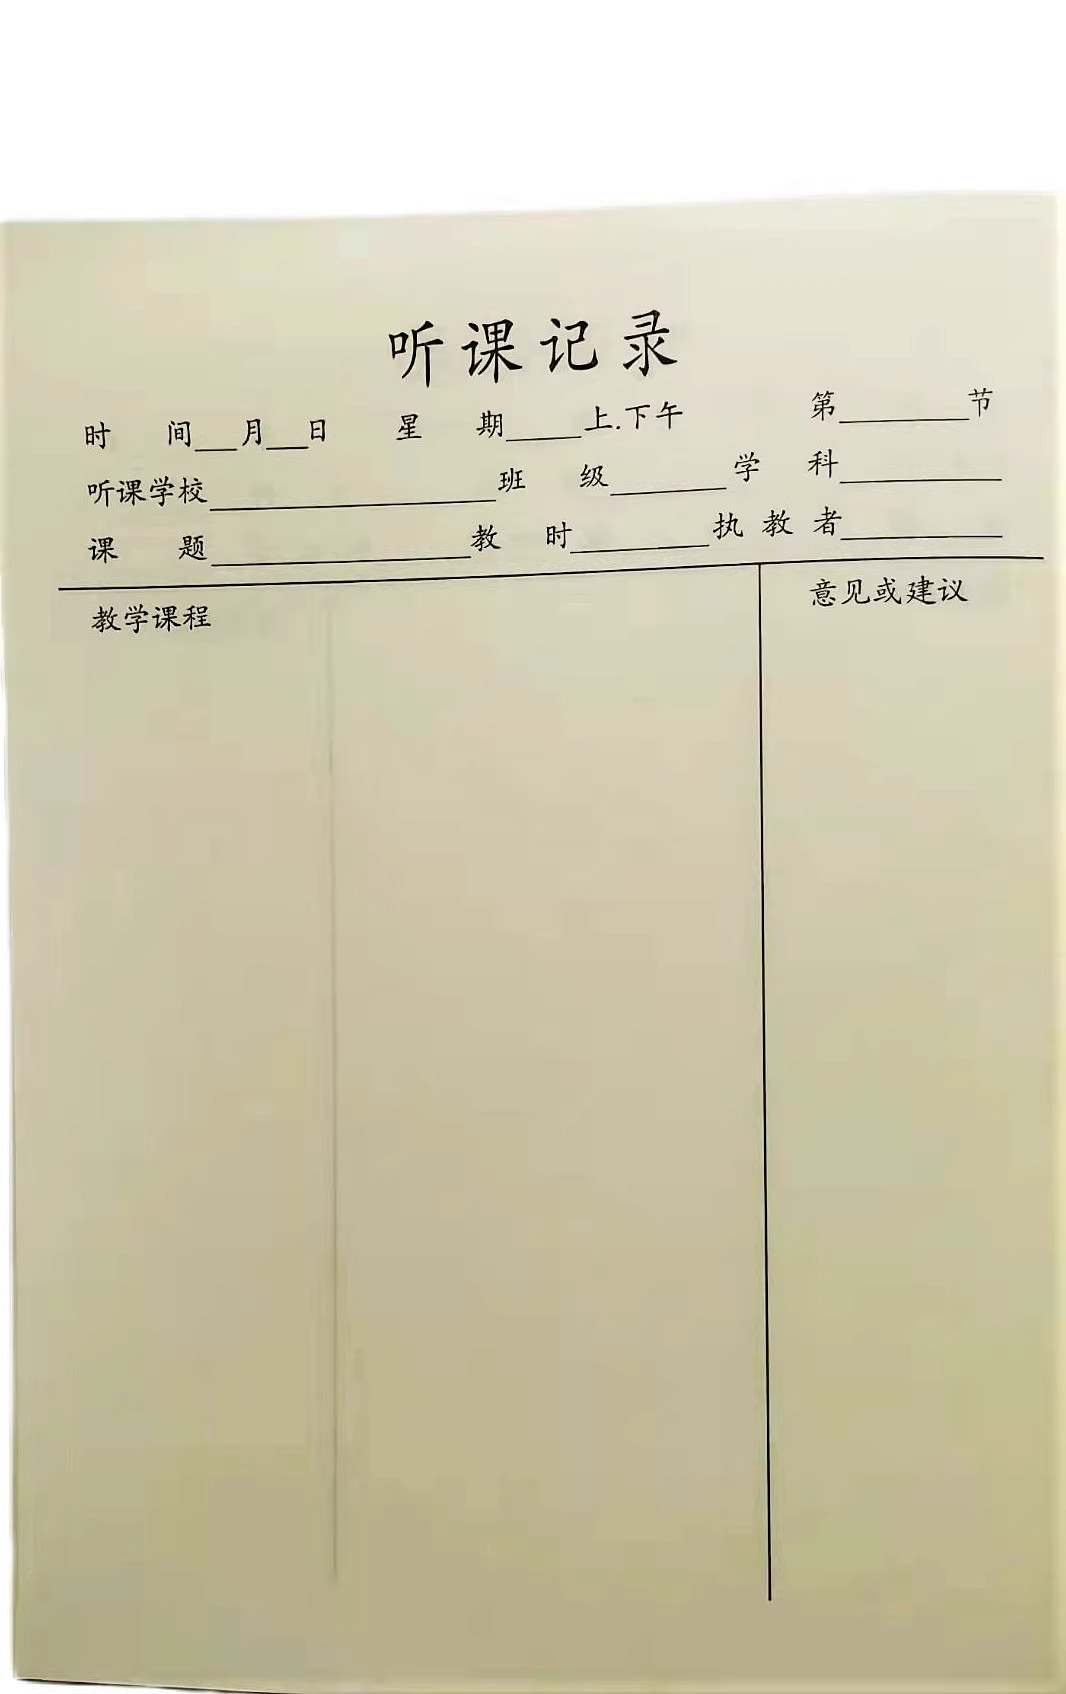 听课记录
时 间___月___日 星 期_____上.下午 第_________节
听课学校____________________班 级________学 科___________
课 题__________________教 时__________执 教 者___________
教学课程 意见或建议